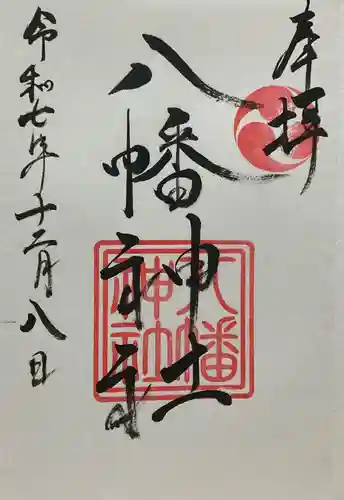 奉拝
八幡神社
八幡
神社
令和七年十二月八日